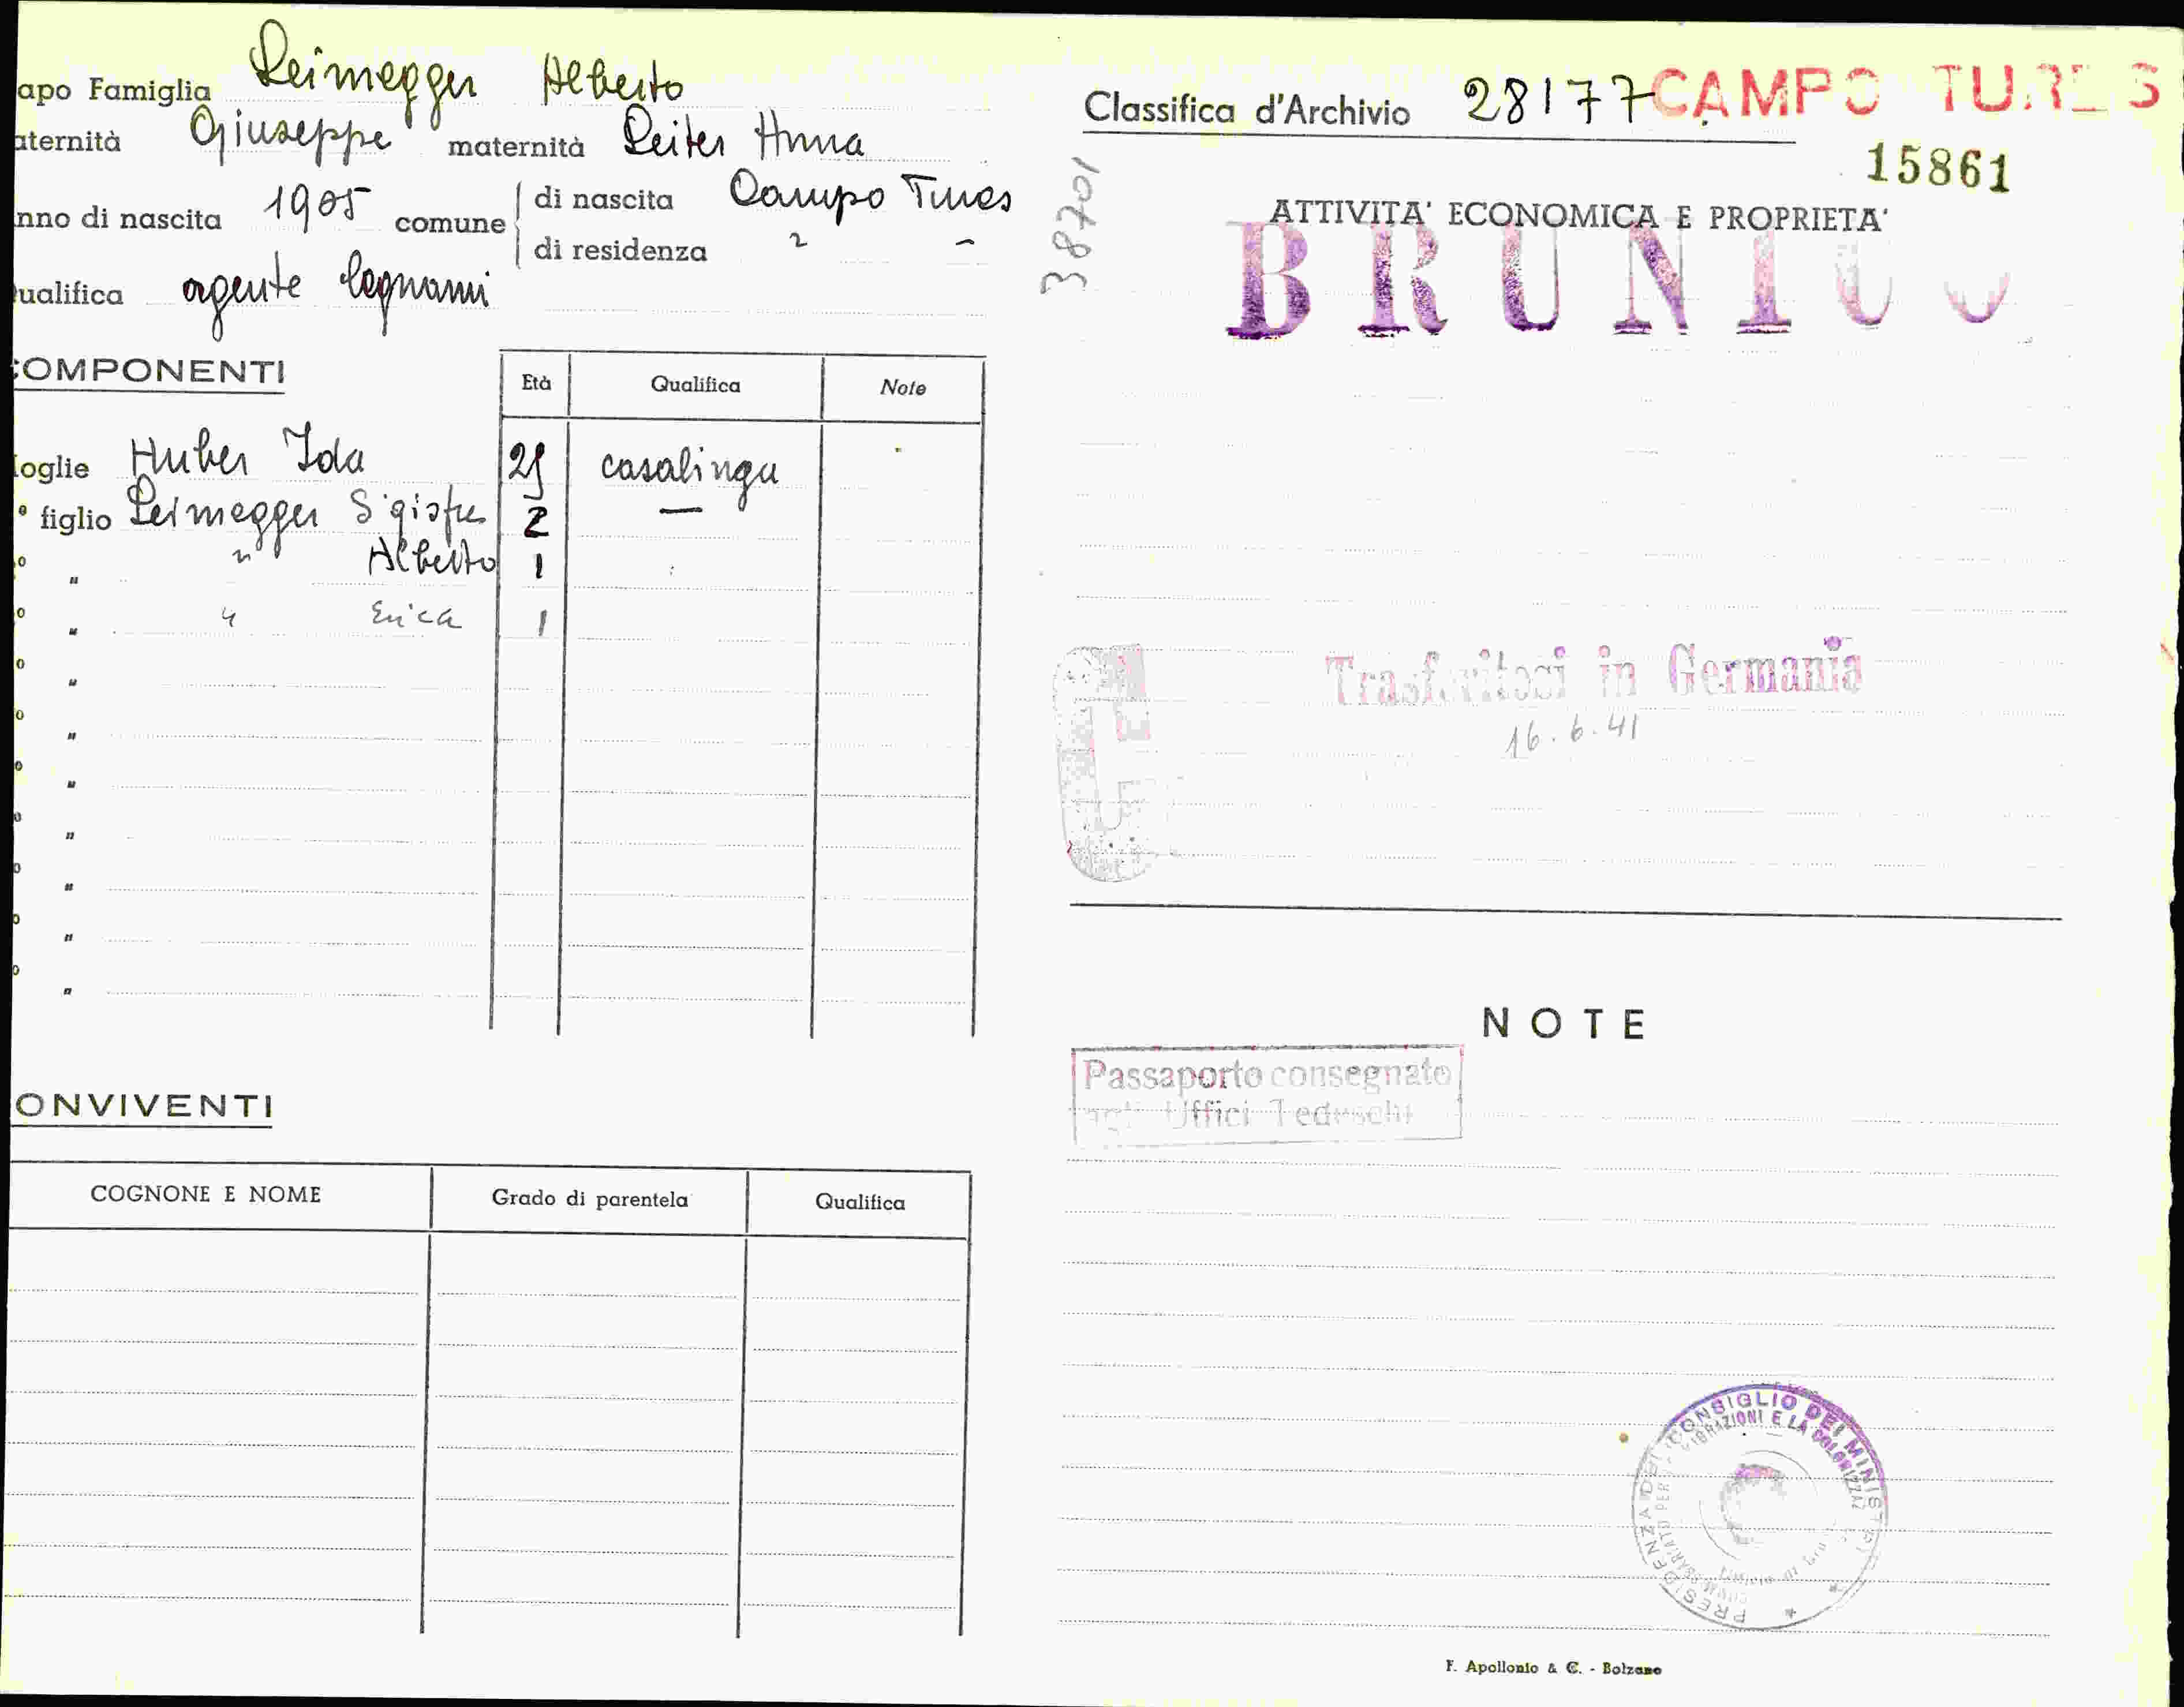 apo Famiglia Leimegger Alberto
aternità Giuseppe maternità Leiter Anna
nno di nascita 1905 comune di nascita Campo Tures
di residenza " "
ualifica agente legnami
COMPONENTI
Età Qualifica Note
oglie Huber Ida 29 casalinga
° figlio Leimegger Sigisfre 2 —
o " " Alberto 1
o " " Erica 1
o "
o "
o "
o "
o "
o "
o "
ONVIVENTI
COGNONE E NOME Grado di parentela Qualifica
Classifica d'Archivio 28177 CAMPO TURES
15861
38701
ATTIVITA' ECONOMICA E PROPRIETA'
BRUNICO
Trasferitosi in Germania
16.6.41
NOTE
Passaporto consegnato
agli Uffici Tedeschi
PRESIDENZA DEL CONSIGLIO DEI MINISTRI
F. Apollonio & C. - Bolzano